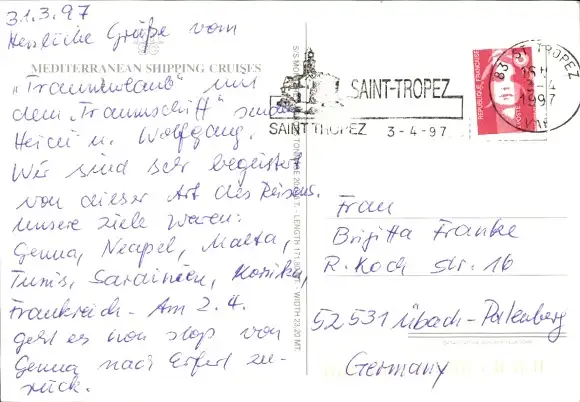 31.3.97
Herzliche Grüße vom
MEDITERRANEAN SHIPPING CRUISES
„Traumurlaub" mit
dem „Traumschiff" sind
Heidi u. Wolfgang.
Wir sind sehr begeistert
von dieser Art des Reisens.
Unsere Ziele waren:
Genua, Neapel, Malta,
Tunis, Sardinien, Korsika,
Frankreich - Am 2.4.
geht es non stop von
Genua nach Erfurt zu-
rück.
LENGTH
WIDTH 23,20 MT.
SAINT-TROPEZ
SAINT TROPEZ 3-4-97
REPUBLIQUE FRANÇAISE
83 ST TROPEZ
15H
3-4
1997
VAR
Frau
Brigitta Franke
R. Koch Str. 16
52531 Übach-Palenberg
Germany